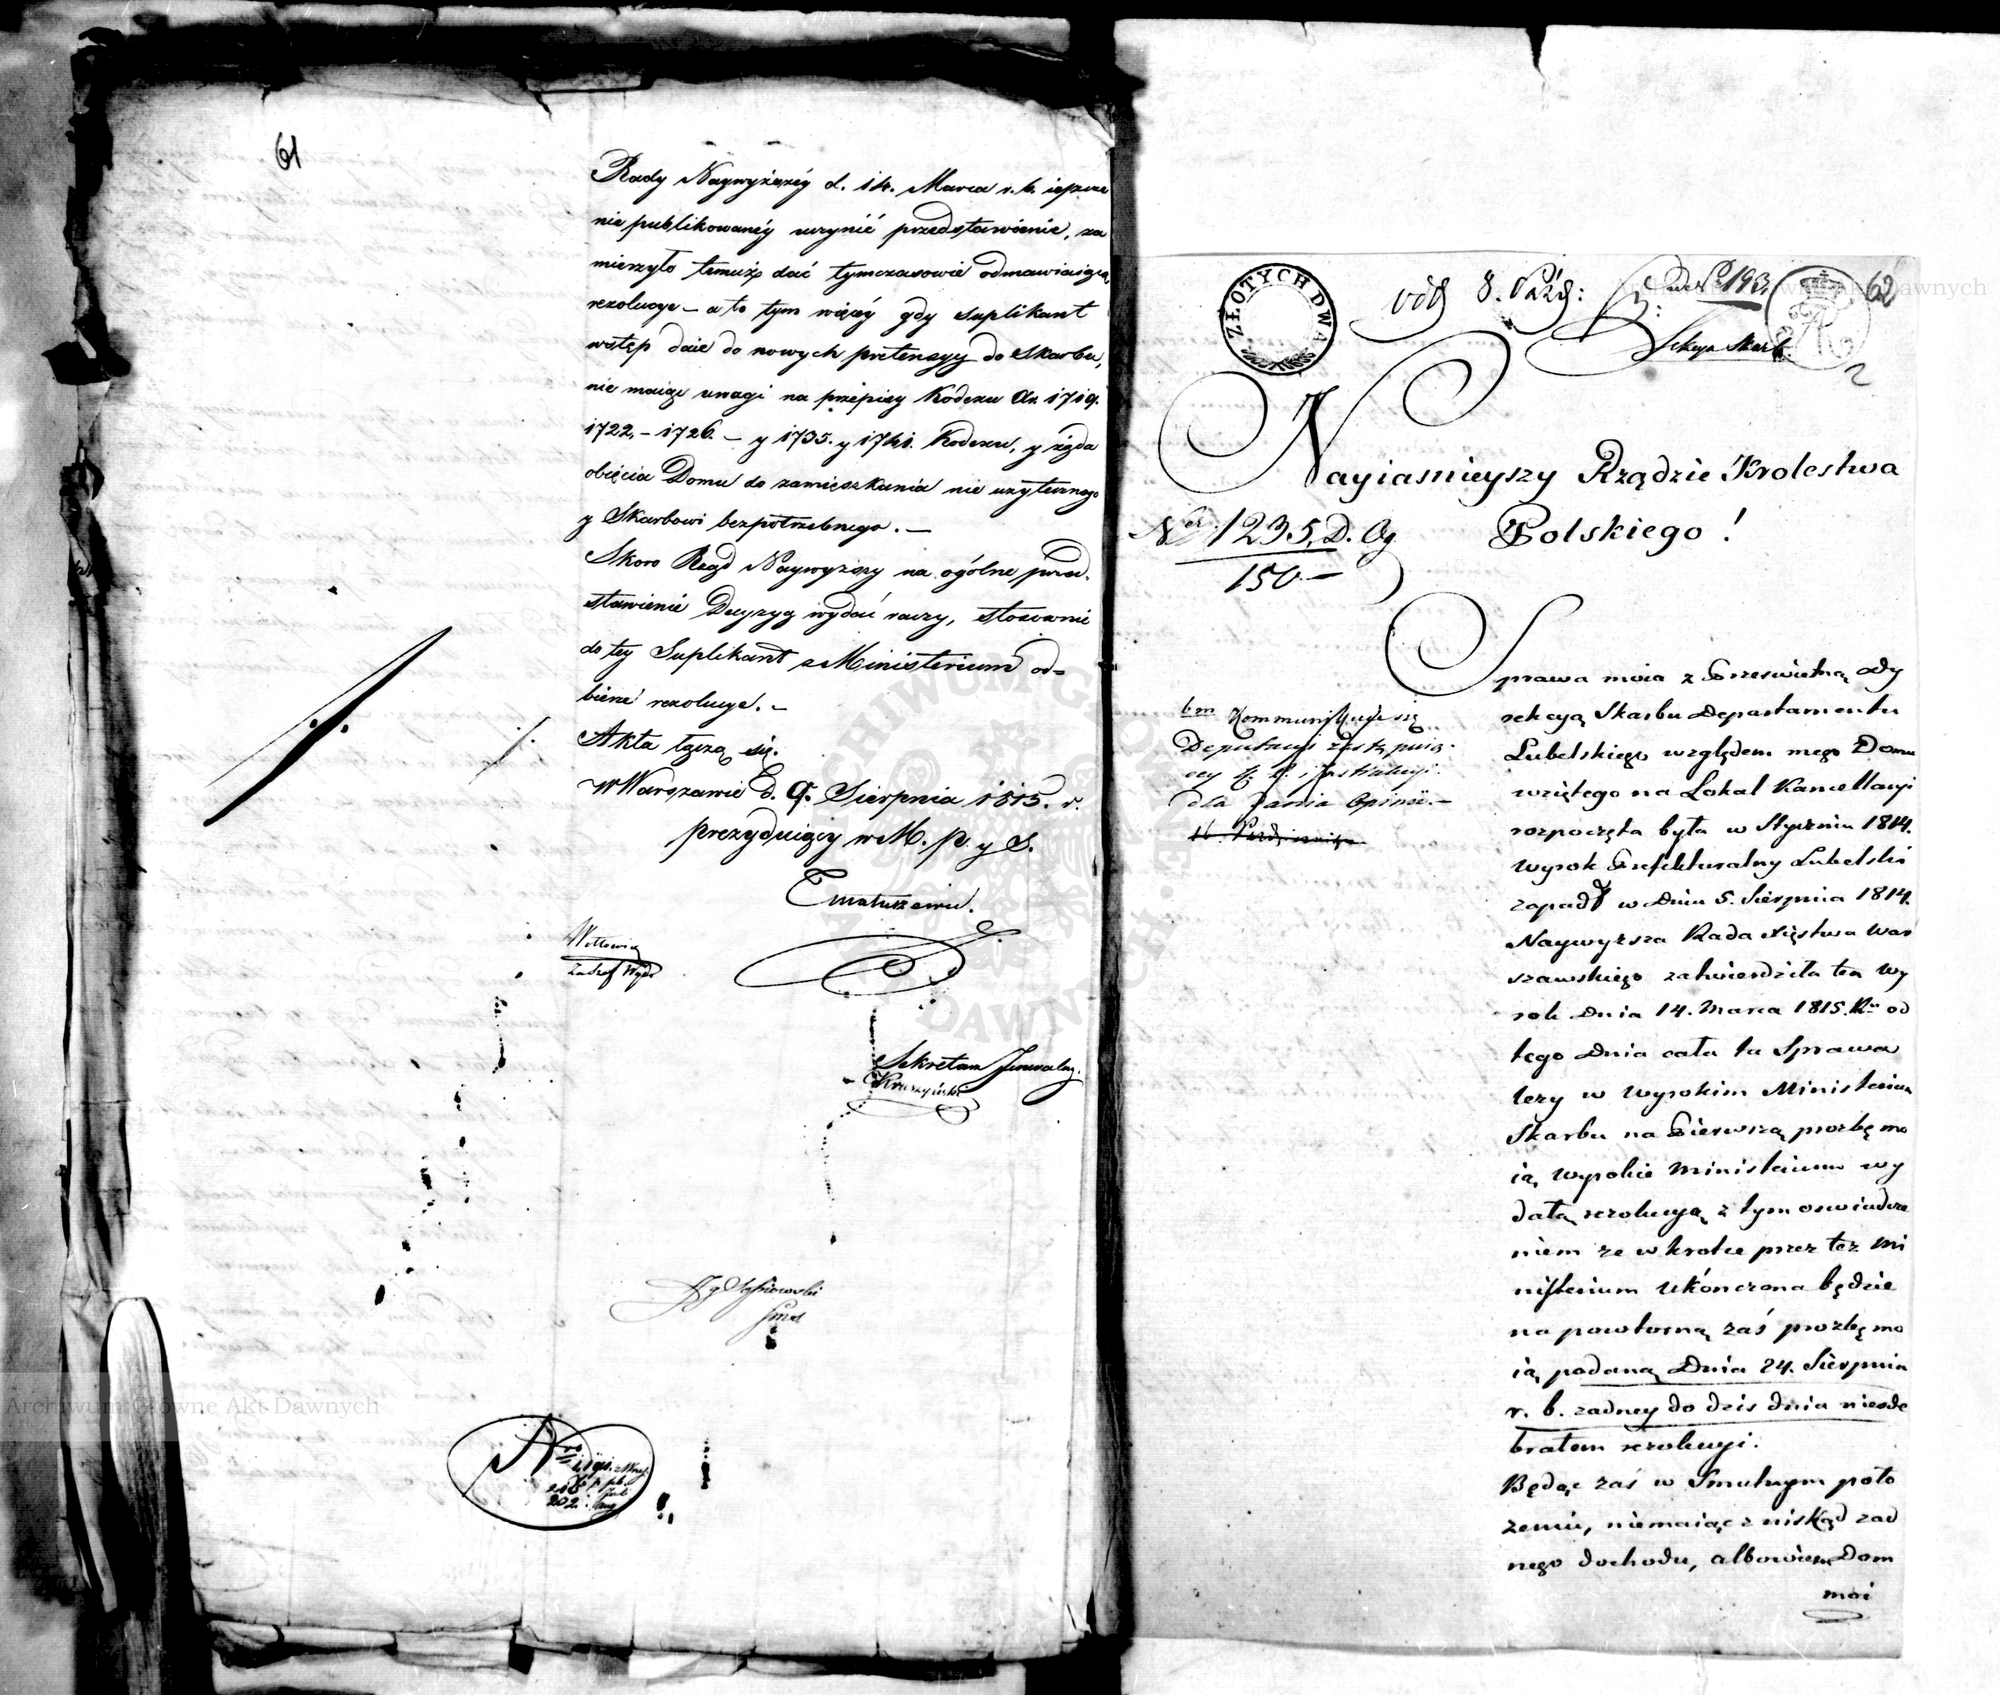 61
Rady Naywyższéy d. 14. Marca r. b. ieszcze
nie publikowanéy uczynić przedstawienie, za
mierzyło temuż dać tymczasowie odmawiaiącą
rezolucye – a to tym więcéy gdy suplikant
wstęp daie do nowych pretensyy do Skarbu,
nie maiąc uwagi na przepisy Kodexu Ar. 1719.
1722. – 1726. – y 1735. y 1741. Kodexu, y żąda
obięcia Domu do zamieszkania nie użytecznego
y Skarbowi bezpotrzebnego. –
Skoro Rząd Naywyższy na ogólne przed-
stawienie Decyzyą wydać raczy, stosownie
do tey Suplikant z Ministerium od=
bierze rezolucye. –
Akta łączą się.
w Warszawie d. 9. Sierpnia 1815. r.
prezyduiący w M. P. y S.
Matuszewic.
Sekretarz Jeneralny.
Kruszyński
202
62
ZŁOTYCH DWA
odd 8. Paźd: 193.
Sekcya Skarb.
Nayiasnieyszy Rządzie Krolestwa
Polskiego!
Ner. 1235. D. Og
150 –
Sprawa moia z Prześwietną Dy
rekcyą Skarbu Departamentu
Lubelskiego względem mego Domu
wziętego na Lokal Kancellaryi
rozpoczęta była w Styczniu 1814.
Wyrok Prefekturalny Lubelski
zapadł w Dniu 5. Sierpnia 1814.
Naywyższa Rada Xięstwa War
szawskiego zatwierdziła ten Wy
rok Dnia 14. Marca 1815. Ru od
tego Dnia cała ta Sprawa
leży w Wysokim Ministerium
Skarbu na Pierwszą prozbę mo
ią Wysokie Ministerium wy
dało rezolucyą z tym oswiadcze
niem ze w krotce przez tez Mi
nisterium Ukónczona będzie
na powtorną zaś prozbę mo
ią podaną Dnia 24. Sierpnia
r. b. zadney do dzis dnia nieode
brałem rezolucyi.
Będąc zaś w Smutnym poło
zeniu, niemaiąc z niskąd zad
nego dochodu, albowiem Dom
moi
bm Kommunikuie się
Deputacyi zastępuią-
cey
dla Dania Opinii. –
Archiwum Główne Akt Dawnych
Archiwum Główne Akt Dawnych